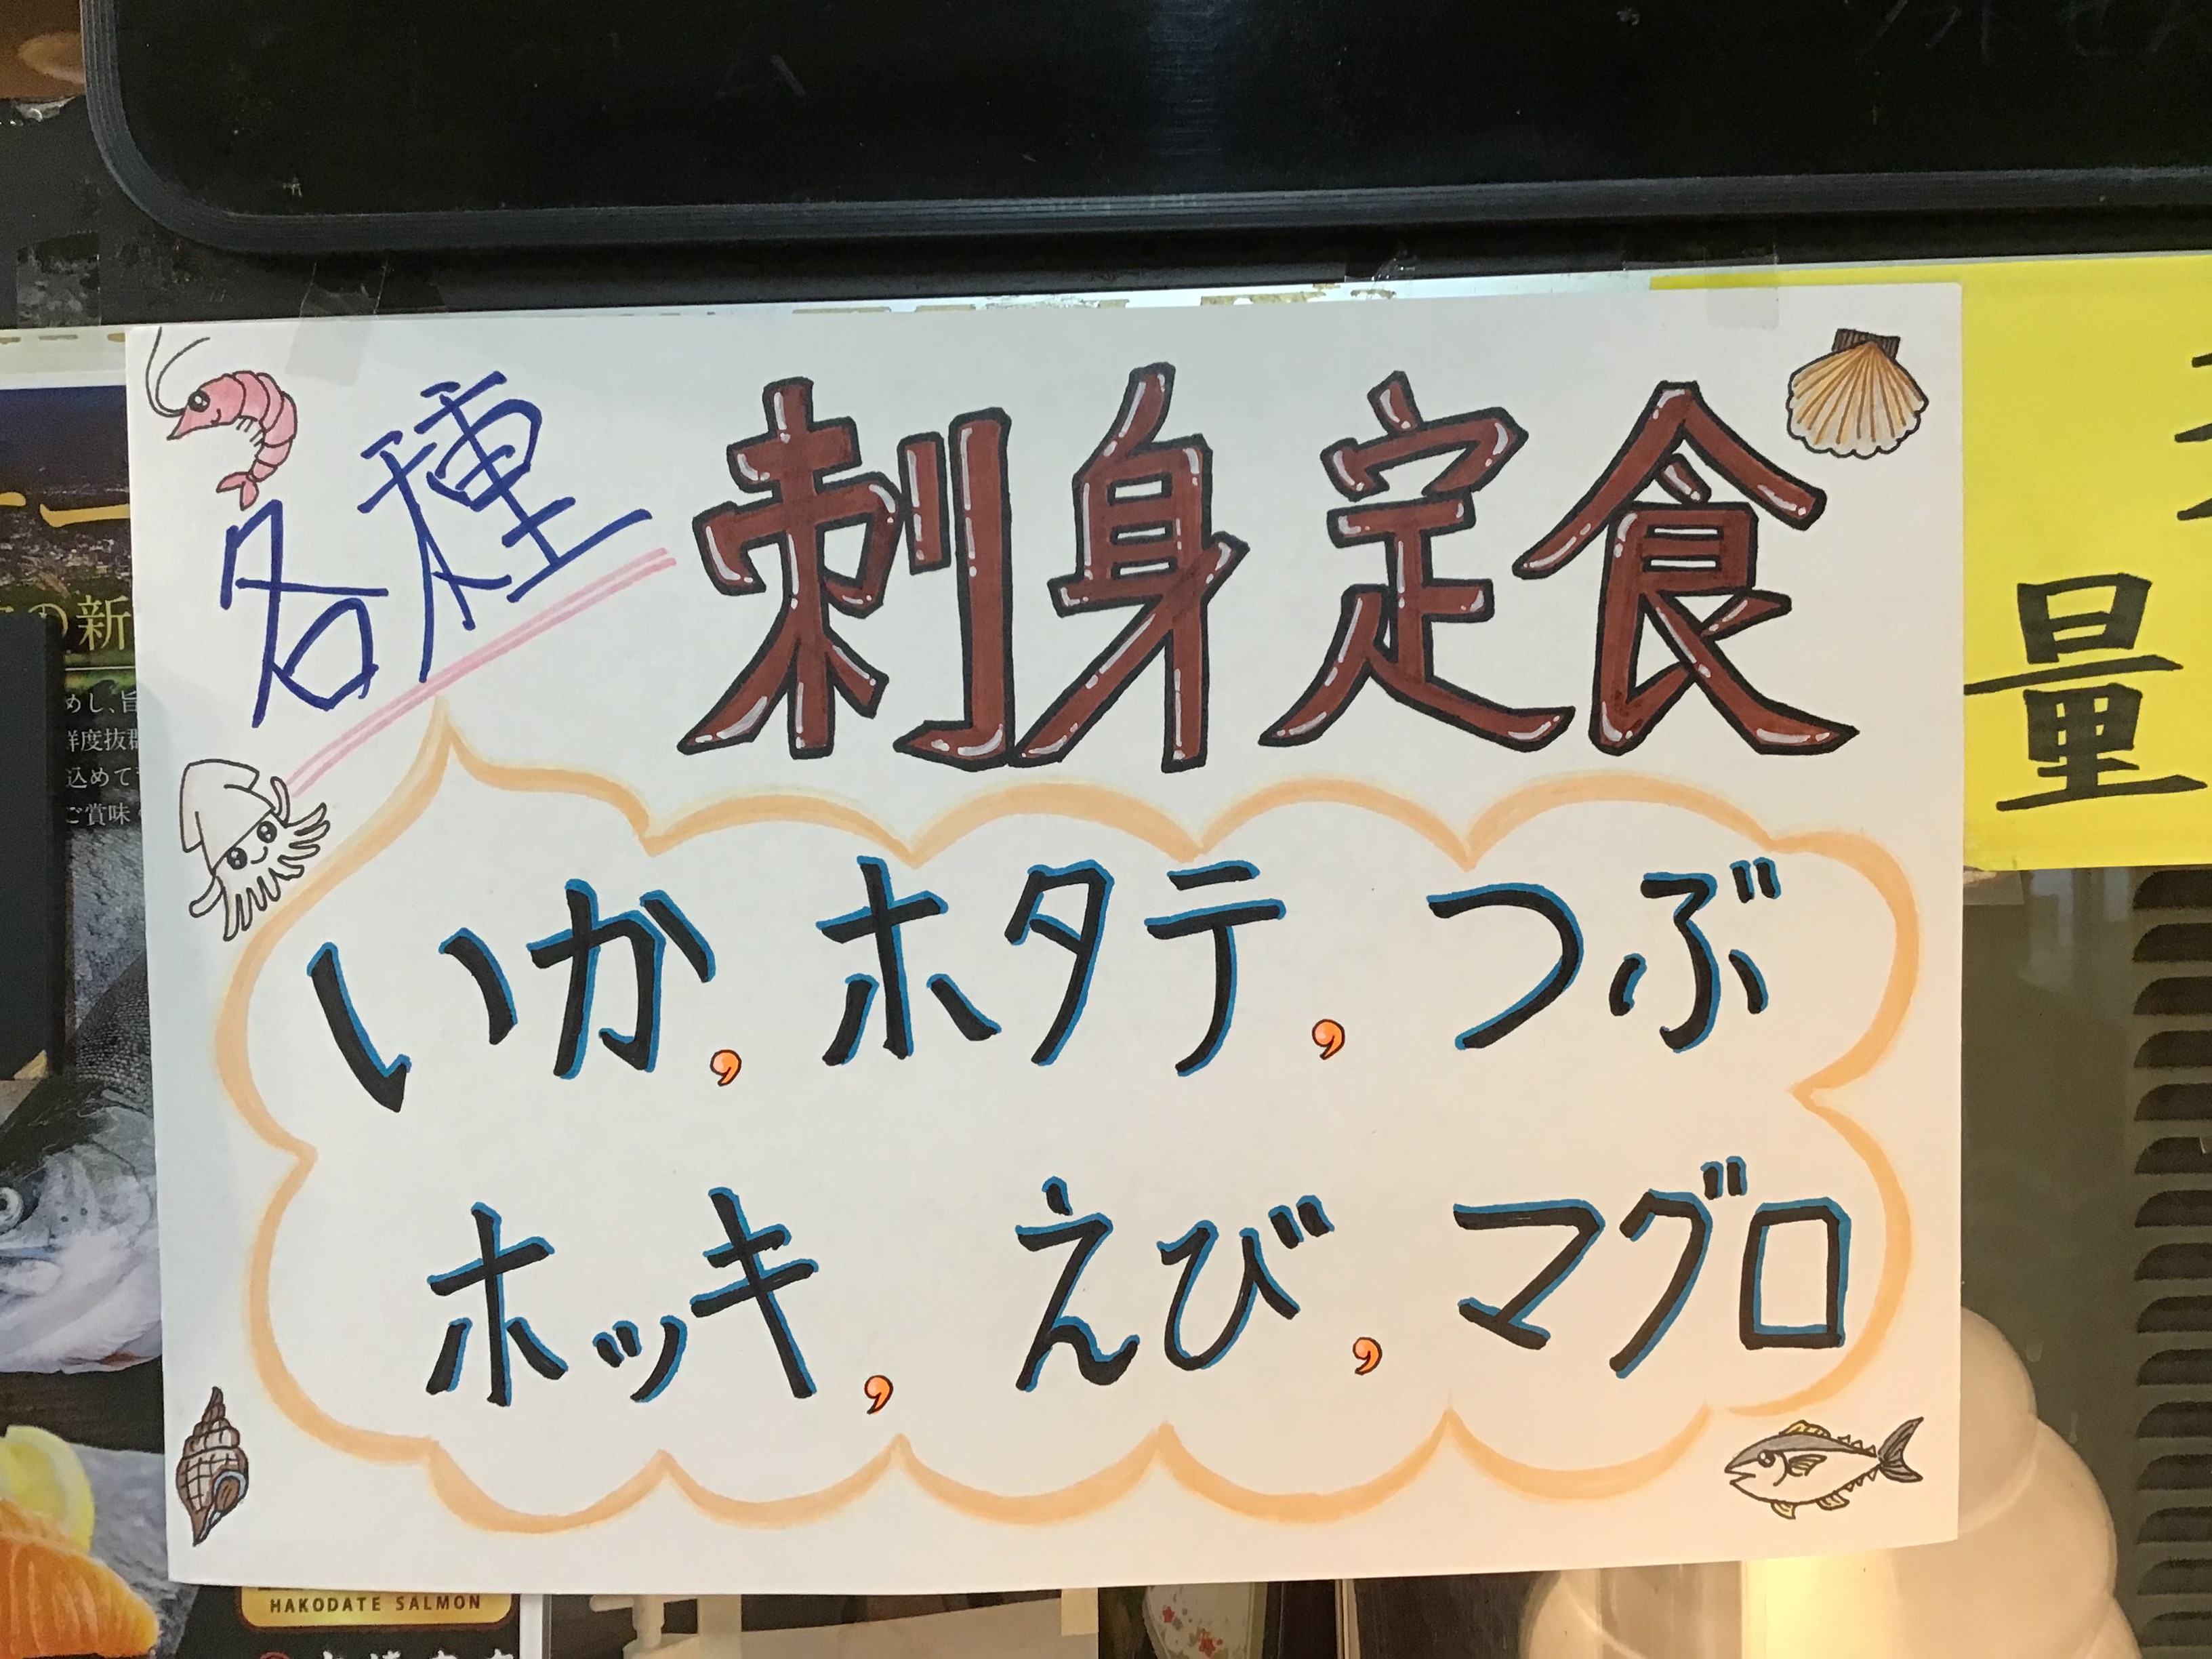 各種
刺身定食
いか, ホタテ, つぶ
ホッキ, えび, マグロ
量
の新
めし、旨
鮮度抜群
込めて
ご賞味
HAKODATE SALMON